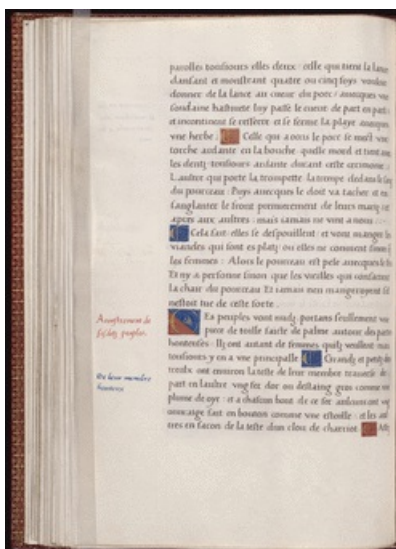 parolles tousiours elles deux: celle qui tient la lance
dansant et monstrant quatre ou cinq foys vouloir
donner de la lance au cueur du porc: auecques vne
soudaine hastiuete luy passe le cueur de part en part:
et incontinent se resserre et se ferme la playe auecques
vne herbe. Celle qui a occis le porc se mest vne
torche ardante en la bouche quelle mord et tient auec
les dentz tousiours ardante durant ceste cerimonie.
L autre qui porte la trompette la trempe dedans le sang
du pourceau: Puys auecques le doit va tacher et en
sanglanter le front premierement de leurs marys et
apres aux aultres: mais iamais ne vint a nous:
Cela fait elles se despouillent: et vont manger les
viandes qui sont es platz ou elles ne conuient sinon
les femmes: Alors le pourceau est pele auecques le feu
Et ny a personne sinon que les vieilles qui consacrent
la chair du pourceau Et iamais nen mangeroyent sil
nestoit tue de ceste sorte.
Acoustrement de
Es peuples vont nudz portans seullement vne
piece de toille faicte de palme autour des parties
honteuses: Ilz ont autant de femmes quilz veullent mais
tousiours y en a vne principalle Grandz et petitz
De leur membre
honteux
ont enuiron la teste de leur membre trauerse de
part en laultre vng fer dor ou destaing gros comme vne
plume de oye: et a chascun bout de ce fer
fait en bouton comme vne estoille: et les aul
tres en facon de la teste dun clou de charriot.